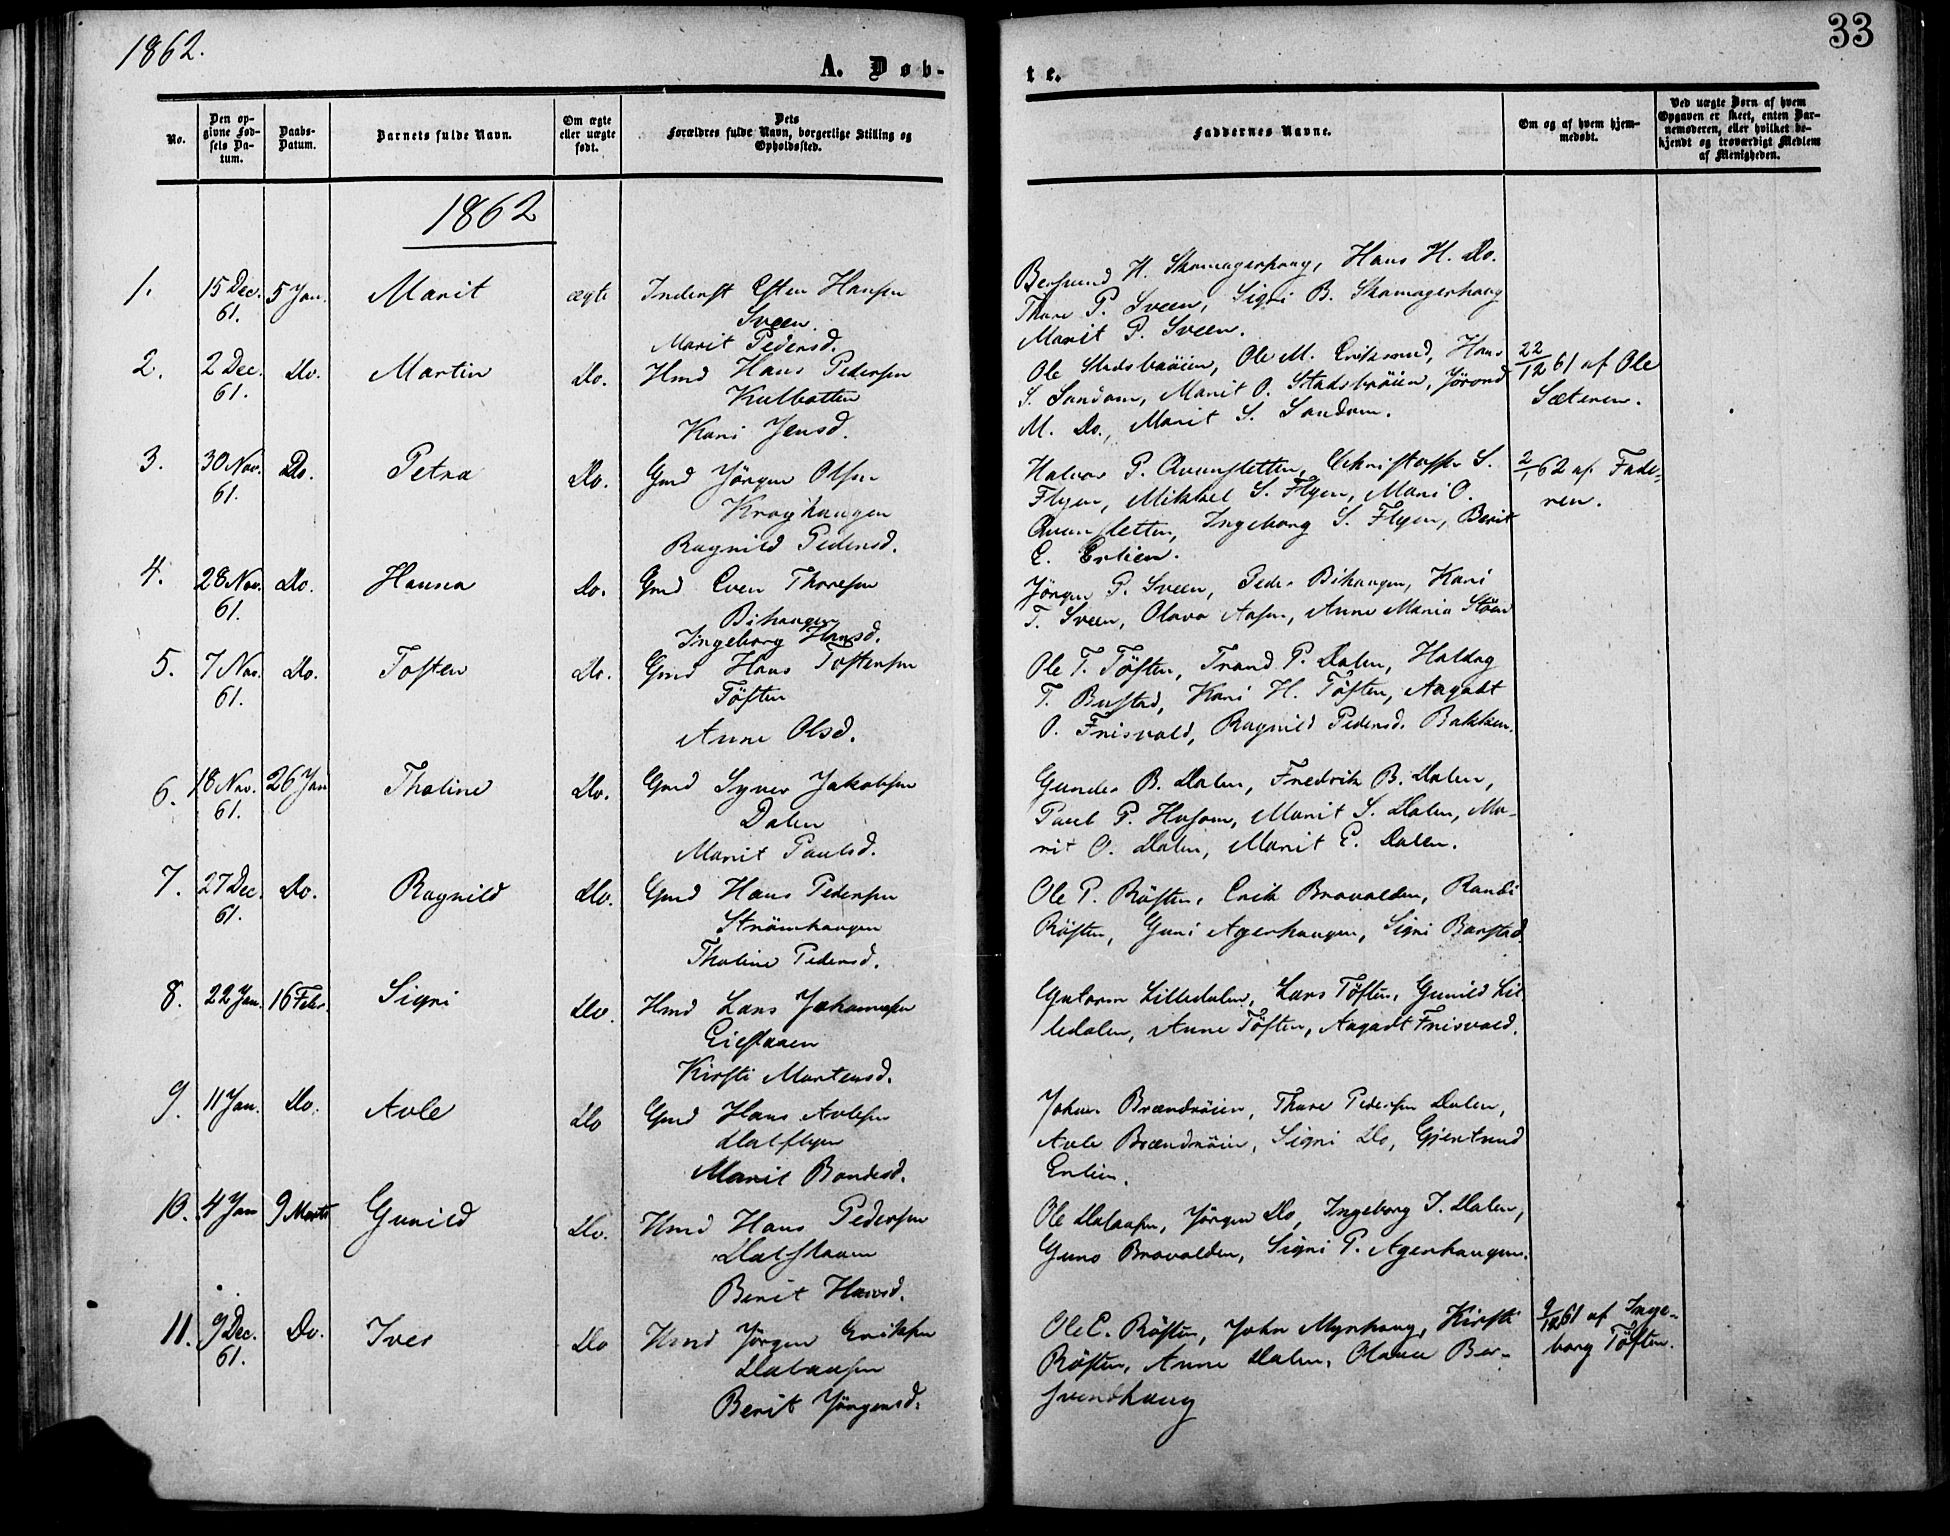 1862.
33
A. Døb-
te.
No.
Den op-
givne Fød-
sels Da-
tum.
Daabs-
Datum.
Barnets fulde Navn.
Om ægte
eller uægte
født.
Dets
Forældres fulde Navn, borgerlige Stilling og
Opholdssted.
Faddernes Navne.
Om og af hvem hjem-
medøbt.
Ved uægte Børn af hvem
Opgaven er skeet, enten Bar-
nemoderen, eller hvilket be-
kjendt og troværdigt Medlem
af Menigheden.
1862
1. 15 Dec. 61. 5 Jan. Marit ægte Inderst Esten Hansen
Sveen.
Marit Pedersd.
Bersvend H. Skomagerhaug, Hans H. Do.
Thore P. Sveen, Sigri B. Skomagerhaug
Marit P. Sveen.
2. 2 Dec. 61. Do. Martin Do. Hmd Hans Pedersen
Kulbotten
Kari Jensd.
Ole Stadsbuøien, Ole M. Hans
S. Sandom, Marit O. Stadsbuøien, Jørond
M. Do., Marit S. Sandom.
22/12 61 af Ole
Sæteren.
3. 30 Nov. 61. Do. Petra Do. Gmd Jørgen Olsen
Kroghaugen
Ragnild Pedersd.
Halvor P. Qvernsletten, Christoffer S.
Flyen, Mikkel S. Flyen, Mari O.
Qvernsletten, Ingeborg S. Flyen, Berit
E. Enlien.
2/1 62 af Fade-
ren.
4. 28 Nov. 61. Do. Hansa Do. Gmd Even Thoresen
Bihaugen
Ingeborg Hansd.
Jørgen P. Sveen, Peder Bihaugen, Kari
T. Sveen, Olava Aasen, Anne Maria Støen
5. 7 Nov. 61. Do. Tosten Do. Gmd Hans Tostensen
Tøften
Anne Olsd.
Ole T. Tøften, Trond P. Dalen, Haldog
T. Bustad, Kari H. Tøften, Aagadt
O. Frisvold, Ragnild Pedersd. Bakken.
6. 18 Nov. 61. 26 Jan Thaline Do. Gmd Syver Jakobsen
Dalen
Marit Paulsd.
Gunder B. Dalen, Fredrik B. Dalen,
Paul P. Husom, Marit S. Dalen, Ma-
rit O. Dalen, Marit E. Dalen.
7. 27 Dec. 61. Do. Ragnild Do. Gmd Hans Pedersen
Strømhaugen
Thaline Pedersd.
Ole P. Røften, Erik Brovolden, Randi
Røften, Guri Agerhaugen, Sigri Barstad
8. 22 Jan. 16 Febr. Sigri Do. Hmd Lars Johannesen
Eiestuen
Kirsti Mortensd.
Guttorm Lilledalen, Lars Tøften, Gunild Lil-
ledalen, Anne Tøften, Aagadt Frisvold.
9. 11 Jan. Do. Avle Do Gmd Hans Avlesen
Dalflyen
Marit Bondesd.
Johan Brændrøien, Thore Pedersen Dalen,
Avle Brændrøien, Sigri Do, Gjertrud
Enlien.
10. 4 Jan 9 Marts Gunild Do. Hmd Hans Pedersen
Dalstuen
Berit Hansd.
Ole Dalaasen, Jørgen Do, Ingeborg J. Dalen,
Guro Brovolden, Sigri P. Agerhaugen.
11. 9 Dec. 61. Do. Iver Do Hmd Jørgen Eriksen
Dalaasen
Berit Jørgensd.
Ole E. Røften, John Myrhaug, Kirsti
Røften, Anne Dalen, Olava Ber-
svendhaug
9/12 61 af Inge-
borg Tøften.